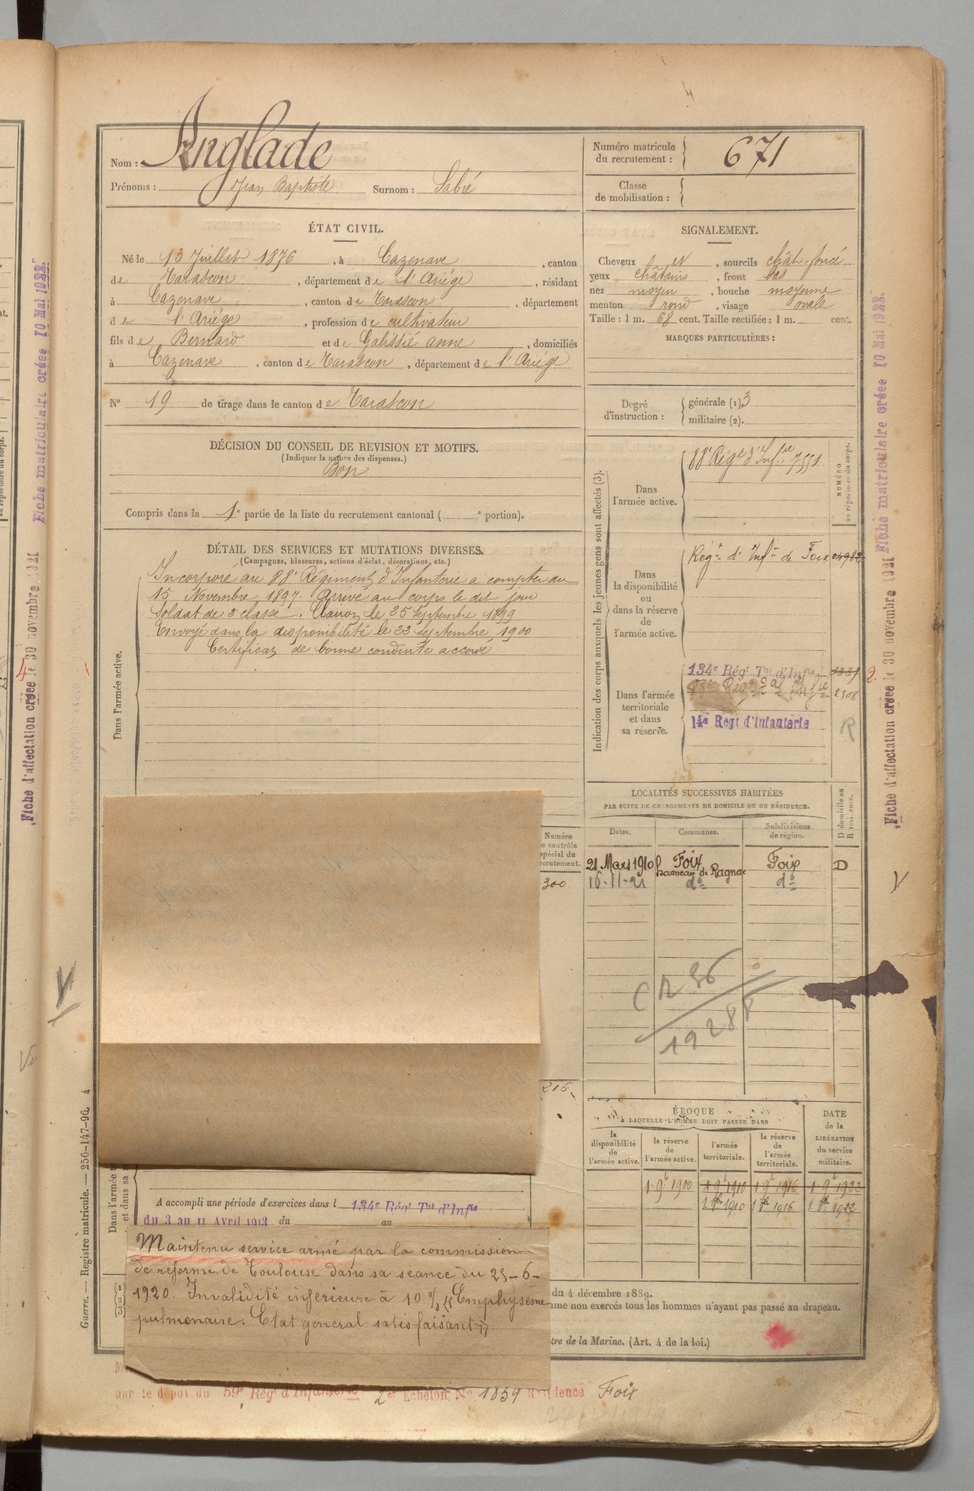 Nom : Anglade
Prénoms : Jean Baptiste Surnom : Sabié
Numéro matricule du recrutement : 671
Classe de mobilisation :
ÉTAT CIVIL.
Né le 13 Juillet 1876, à Cazenave, canton
de Tarascon, département de l'Ariège, résidant
à Cazenave, canton de Tarascon, département
de l'Ariège, profession de cultivateur
fils de Bernard et de Galissié anne, domiciliés
à Cazenave, canton de Tarascon, département de l'Ariège
N° 19 de tirage dans le canton de Tarascon
SIGNALEMENT.
Cheveux et, sourcils chât. foncé
yeux châtains, front bas
nez moyen, bouche moyenne
menton rond, visage ovale
Taille : 1 m. 68 cent. Taille rectifiée : 1 m. cent.
MARQUES PARTICULIÈRES :
Degré d'instruction : générale (1) 3
militaire (2).
DÉCISION DU CONSEIL DE REVISION ET MOTIFS.
(Indiquer la nature des dispenses.)
Bon
Compris dans la 1e partie de la liste du recrutement cantonal ( e portion).
DÉTAIL DES SERVICES ET MUTATIONS DIVERSES.
(Campagnes, blessures, actions d'éclat, décorations, etc.)
Dans l'armée active.
Incorporé au 88e Régiment d'Infanterie a compter du
15 Novembre 1897. Arrivé au corps le dit jour
Soldat de 2e classe. Clairon le 25 Septembre 1899
Envoyé dans la disponibilité le 23 Septembre 1900
Certificat de bonne conduite accordé
Indication des corps auxquels les jeunes gens sont affectés (3).
NUMÉRO au répertoire du corps.
Dans l'armée active.
88e Régt d'Infie 7551
Dans la disponibilité ou dans la réserve de l'armée active.
Régt d'Infie de Foix
Dans l'armée territoriale et dans sa réserve.
134e Régt Tal d'Infie
2508
14e Regt d'Infanterie
R
2
LOCALITÉS SUCCESSIVES HABITÉES
PAR SUITE DE CHANGEMENTS DE DOMICILE OU DE RÉSIDENCE.
Dates. Communes. Subdivisions de région. D domicile ou R résidence.
21 Mars 1910 Foix hameau de Ragnac Foix D
16-11-21 do do
Numéro au contrôle spécial du recrutement.
300
216
C R 36
19288
ÉPOQUE
À LAQUELLE L'HOMME DOIT PASSER DANS
la disponibilité de l'armée active. la réserve de l'armée active. l'armée territoriale. la réserve de l'armée territoriale. DATE de la LIBÉRATION du service militaire.
1 9e 1900 1 9e 1910 1 9e 1916 1 9e 1922
1910 1916 1922
A accompli une période d'exercices dans l 134e Régt Tal d'Infie
du 3 au 11 Avril 1913 du au
Maintenu service armé par la commission
de réforme de Toulouse dans sa séance du 25-6-
1920. Invalidité inférieure à 10 % (( Emphysème
pulmonaire. Etat général satisfaisant ))
du 4 décembre 1889.
me non exercés tous les hommes n'ayant pas passé au drapeau.
tre de la Marine. (Art. 4 de la loi.)
par le dépôt du 59e Régt d'Infanterie 2e Echelon No 1839 Résidence Foix
Guerre. — Registre matricule. — 256-147-96. 4
Fiche d'affectation créée le 30 novembre 1921
Fiche matriculaire créée 10 Mai 1922.
Fiche d'affectation créée le 30 novembre 1921
Fiche matriculaire créée 10 Mai 1922.